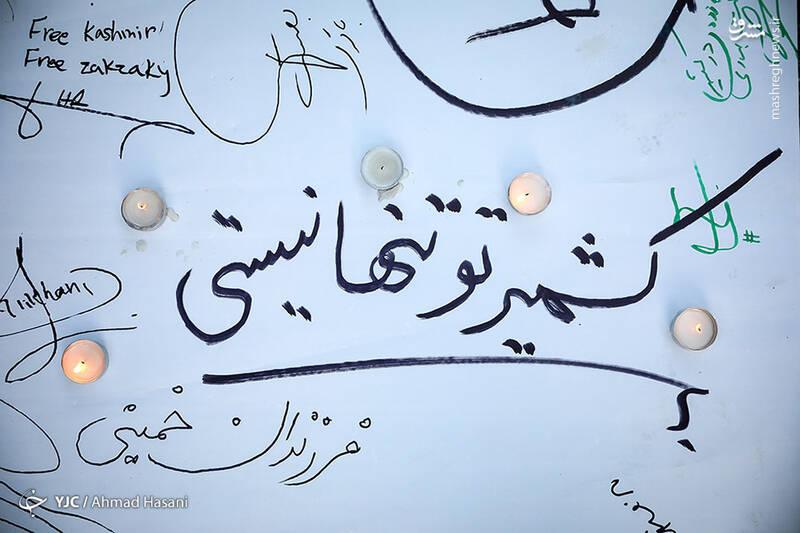 Free Kashmir
Free zakzaky
HR
مشرق
mashreghnews.ir
کشمیر تو تنها نیستی
#
فرزندان خمینی
YJC / Ahmad Hasani